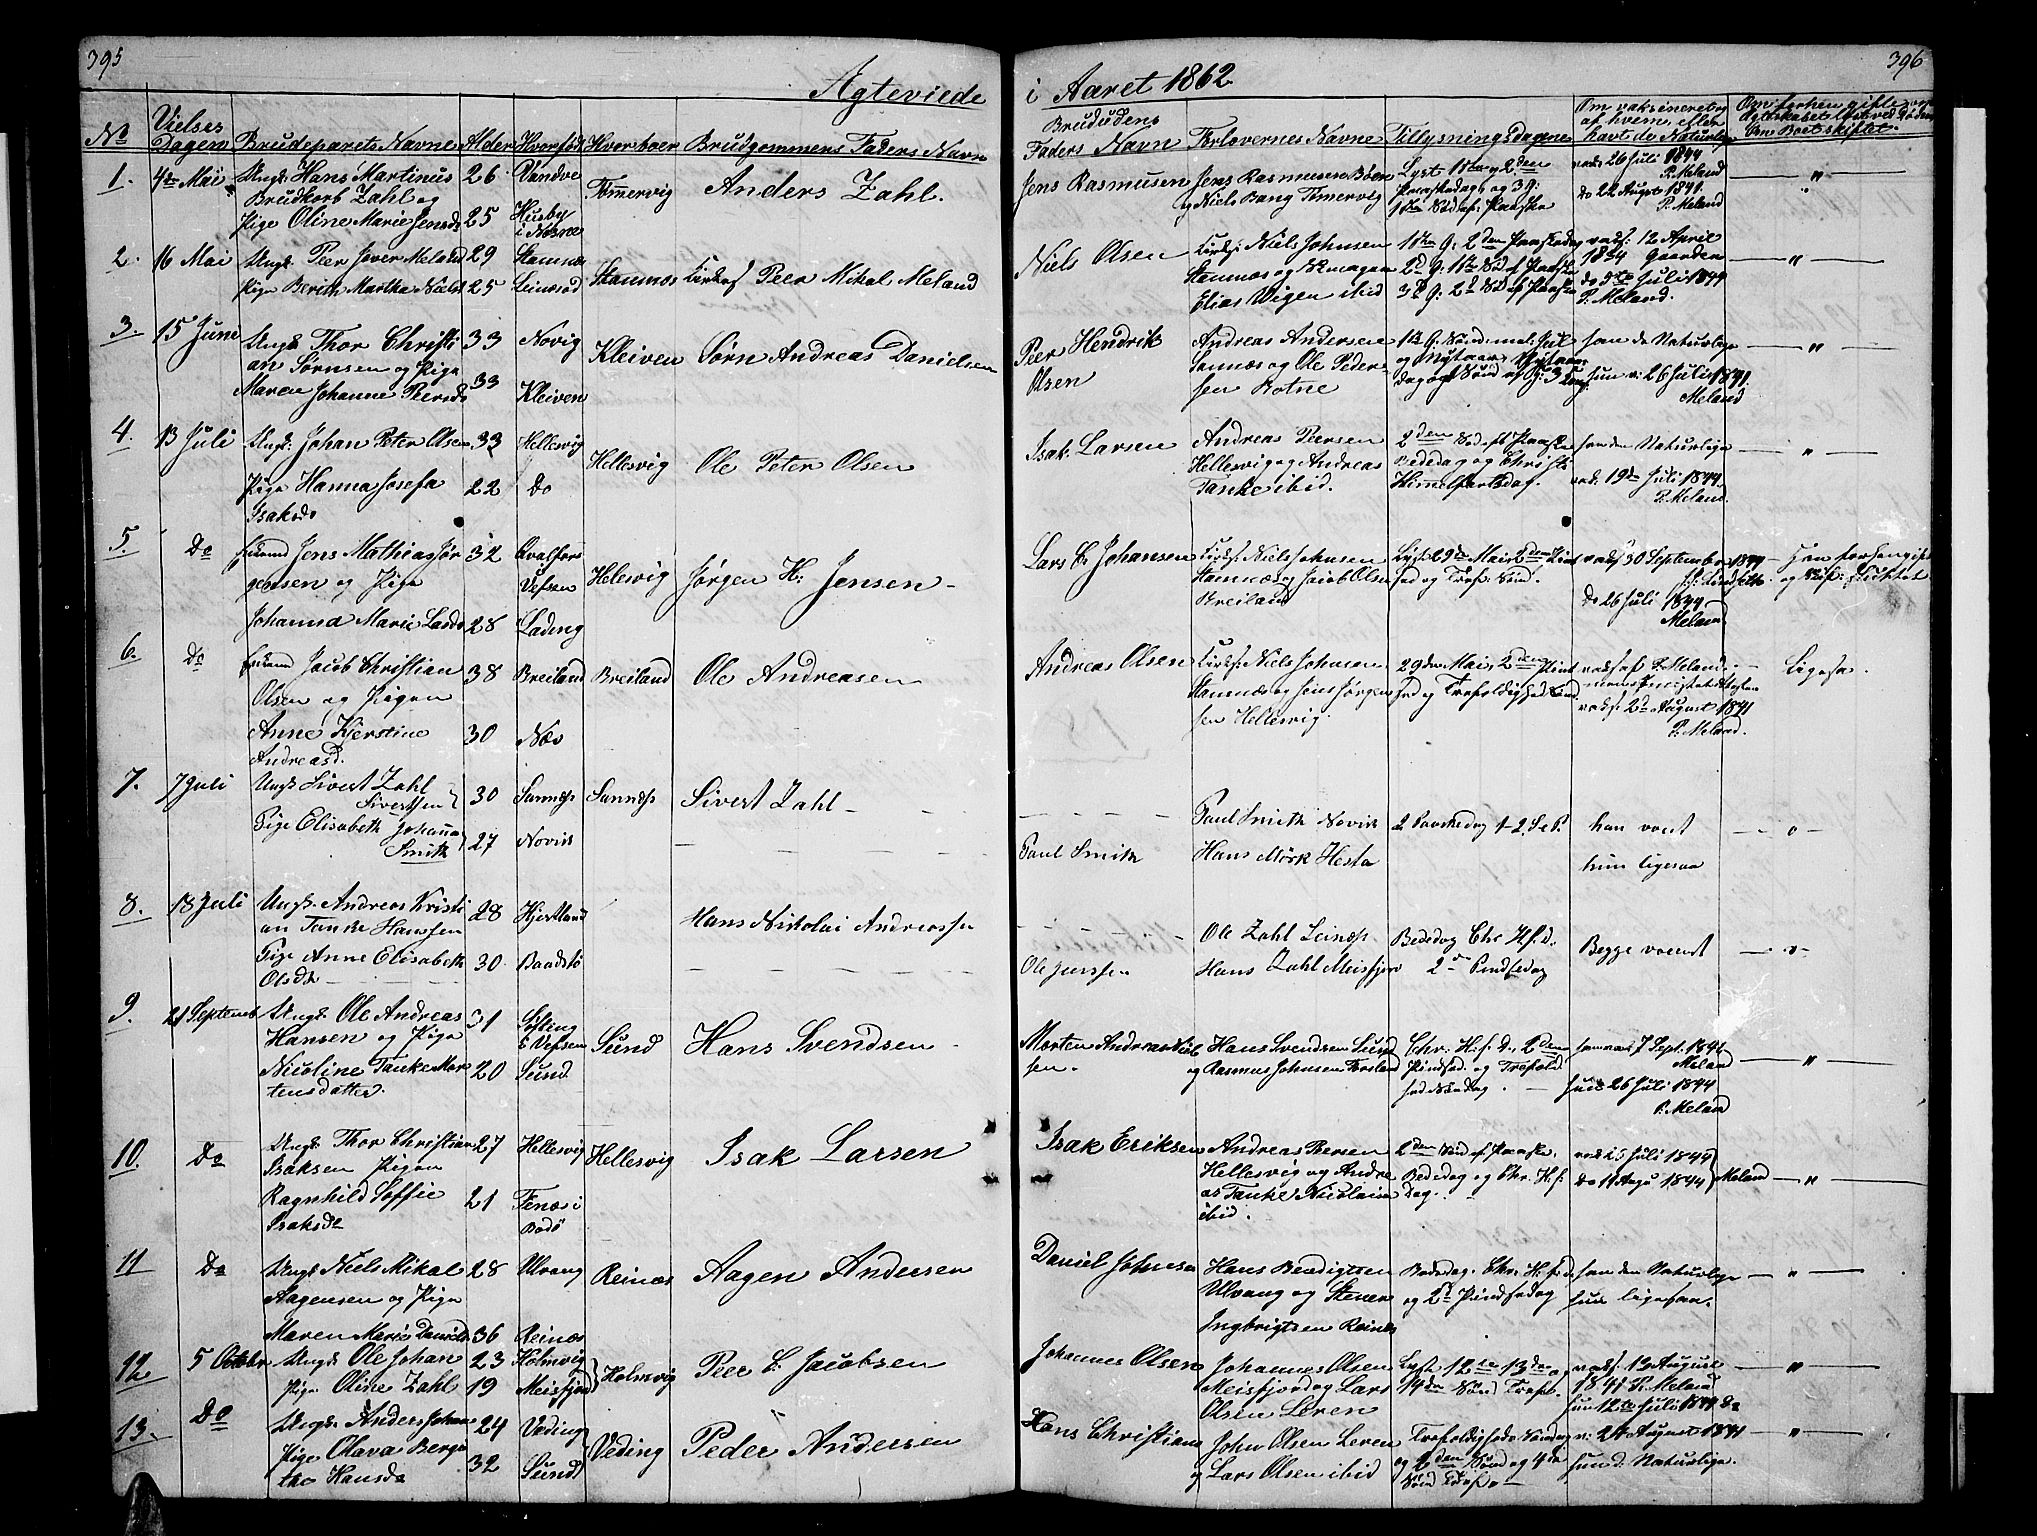 395
396
Agteviede
i Aaret 1862
No
Vielses Dagen
Brudeparets Navne
Alder
Hvor født
Hvor boer
Brudgommens Faders Navn
Brududens Faders Navn
Forlovernes Navne
Tillysningsdagene
Om vaksineret og af hvem, eller havt de Naturlige
1.
4de Mai
Ungk. Hans Martinus
Brudkorb Zahl og
Pige Oline Marie Jensd.
26
25
Vandve
Husby
i Næsne
Tømmervig
Anders Zahl.
Jens Rasmusen
Jens Rasmusen
og Niels Bang Tømmervig
Lyst 1ste og 2den
Paaskedag og 3 g:
1ste Sønd af: Paaske
vads 26 Juli 1844
P. Meland
do 22 August 1841.
P. Meland
2.
16 Mai
Ungk. Peer Iver Meland
Pige Berith Martha Nielsd
29
25
Stamnæs
Leinesod
Stamnæs
Kirks. Peer Mikal Meland
Niels Olsen
Kirks: Niels Johnsen
Stamnæs og
Elias Wigen ibid
1ste g. 2den Paaskedag
2d g: 1ste Sød af Paaske
3d g: 2d Sød af Paaske
vads: 12 April
1834 Gaarden
do 5te Juli 1844
P. Meland.
3.
15 June
Ungk Thor Christi
an Sørnsen og Pige
Maren Johanne Peersd
33
33
Novig
Kleiven
Kleiven
Sørn Andreas Danielsen
Peer Hendrik
Olsen
Andreas Andersen
Sannæs og Ole Peder
sen Botne
han de Naturlige
hun v: 26 Juli 1841.
Meland
4.
13 Juli
Ungk: Johan Peter Olsen
Pige Hanna Josefa
Isaksd
33
22
Hellesvig
Do
Hellesvig
Ole Peter Olsen
Isak Larsen
Andreas Peersen
Hellesvig og Andreas
Tanke ibid.
2den Sød eft Paaske
Bededag og Christi
Himmelfartsdag.
han den Naturlige
vads 19de Juli 1844.
P. Meland.
5.
Do
Enkemd Jens Mathias Jør
gensen og Pige
Johanna Marie Larsd
32
28
Qvalfors
Vefsen
Lading
Helesvig
Jørgen H: Jensen
Lars C. Johansen
Kirks: Niels Johnsen
Stamnæs og Jacob Olsen
Breiland
Lyst 29de Mai 2den Pint
sed og Tref. Sønd.
vads 30 September 1844
do 26 Juli 1844
Meland
Han forhen gift
og Skif: Sluttet
6.
Do
Enkemd Jacob Christian
Olsen og Pigen
Anne Kjerstine
Andreasd.
38
30
Breiland
Næv
Breiland
Ole Andreasen
Andreas Olsen
Kirks: Niels Johnsen
Stamnæs og Jens Jørgen
sen Hellesvig.
29de Mai, 2den Pint
sed og Trefoldighed Sønd.
vads af P. Meland
vads. 2d August 1841
P. Meland.
Ligesa.
7.
7 Juli
Ungk Sivert Zahl
Sivertsen
Pige Elisabeth Johanna
Smith
30
27
Sannæs
Novik
Sannæs
Sivert Zahl
Paul Smith
Paul Smith Novik
Hans Mørk Hestø
2 Paaskedag 1-2 S. e P.
han vaent
hun ligesaa
8.
18 Juli
Ungk. Andreas Kristi
an Tanke Hanssen
Pige Anne Elisabeth
Olsdr
28
30
Hjertland
Baadstø
Hans Nikolai Andreassen
Ole Jenssen
Ole Zahl Leines
Hans Zahl Meisfjor
Bededag Chr H.f.d.
2den Pindsedag
Begge vaent
9.
21 Septemb
Ungk. Ole Andreas
Hansen og Pige
Nicoline Tanke Mor
tensdatter.
31
20
Søfting
i Vefsen
Sund
Sund
Hans Svendsen
Morten Andreas Niel
sen.
Hans Svendsen Sund
og Rasmus Johnsen Forsland
Chr. H. f. D., 2den
Pindsed. og Trefold
hed Søndag.
han v: 7 Sept. 1841
Meland
hun 26 Juli 1844
P. Meland
10.
Do
Ungk. Thor Christian
Isaksen Pigen
Ragnhild Soffie
Isaksdr
27
21
Hellesvig
Fenes i
Bodø
Hellesvig
Isak Larsen
Isak Eriksen
Andreas Peersen
Hellesvig og Andre
as Tanke Nicolaisen
ibid.
2den Sød af Paaske,
Bededag og Chr. H. f:
Dag.
vads 25 Juli 1849
do 11 Augu 1844
Meland
11
Do
Ungk Niels Mikal
Aagensen og Pige
Maren Marie Danielsd.
28
36
Ulvang
Reinæs
Reinæs
Aagen Andersen
Daniel Johnsen
Hans Bendigtsen
Ulvang og Stener
Ingbrigtsen Reinæs
Bededag. Chr. H. f. d.
og 2d Pindsedag
han den Naturlige
hun ligesaa.
12.
5 Octobr
Ungk Ole Johan
Pige Oline Zahl
23
19
Holmvig
Meisfjord
Holmvig
Peer C. Jacobsen
Johannes Olsen
Johannes Olsen
Meisfjord og Lars
Olsen Leren
Lyst. 12te 13de og
14de Sønd Tref.
vads: 13 August
1841 P. Meland
hun 12te Juli 1844 Do
13.
Do
Ungk: Anders Johan
Pige Olava Berge
the Hansd
24
32
Veding
Sund
Veding
Peder Andersen
Hans Christian
John Olsen Leren
og Lars Olsen ibid
Trefoldigheds Søndag
og 2den Sønd og 4de
Sønd Tref.
v: 24 August 1841
hun d. Naturlige.